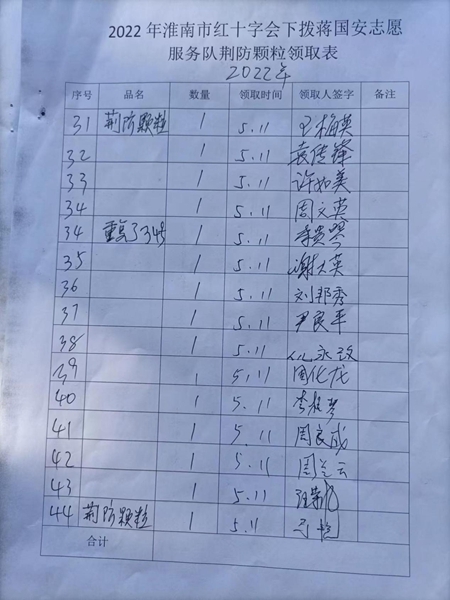 2022年淮南市红十字会下拨蒋国安志愿
服务队荆防颗粒领取表
2022年
序号 品名 数量 领取时间 领取人签字 备注
31 荆防颗粒 1 5.11 王梅英
32 1 5.11 袁传锋
33 1 5.11 许如美
34 1 5.11 周文英
34 重复了34号 1 5.11 李贵琴
35 1 5.11 谢大英
36 1 5.11 刘邦秀
37 1 5.11 尹良平
38 1 5.11
39 1 5.11 周化龙
40 1 5.11 李桂琴
41 1 5.11 周良成
42 1 5.11 周兰云
43 1 5.11
44 荆防颗粒 1 5.11
合计